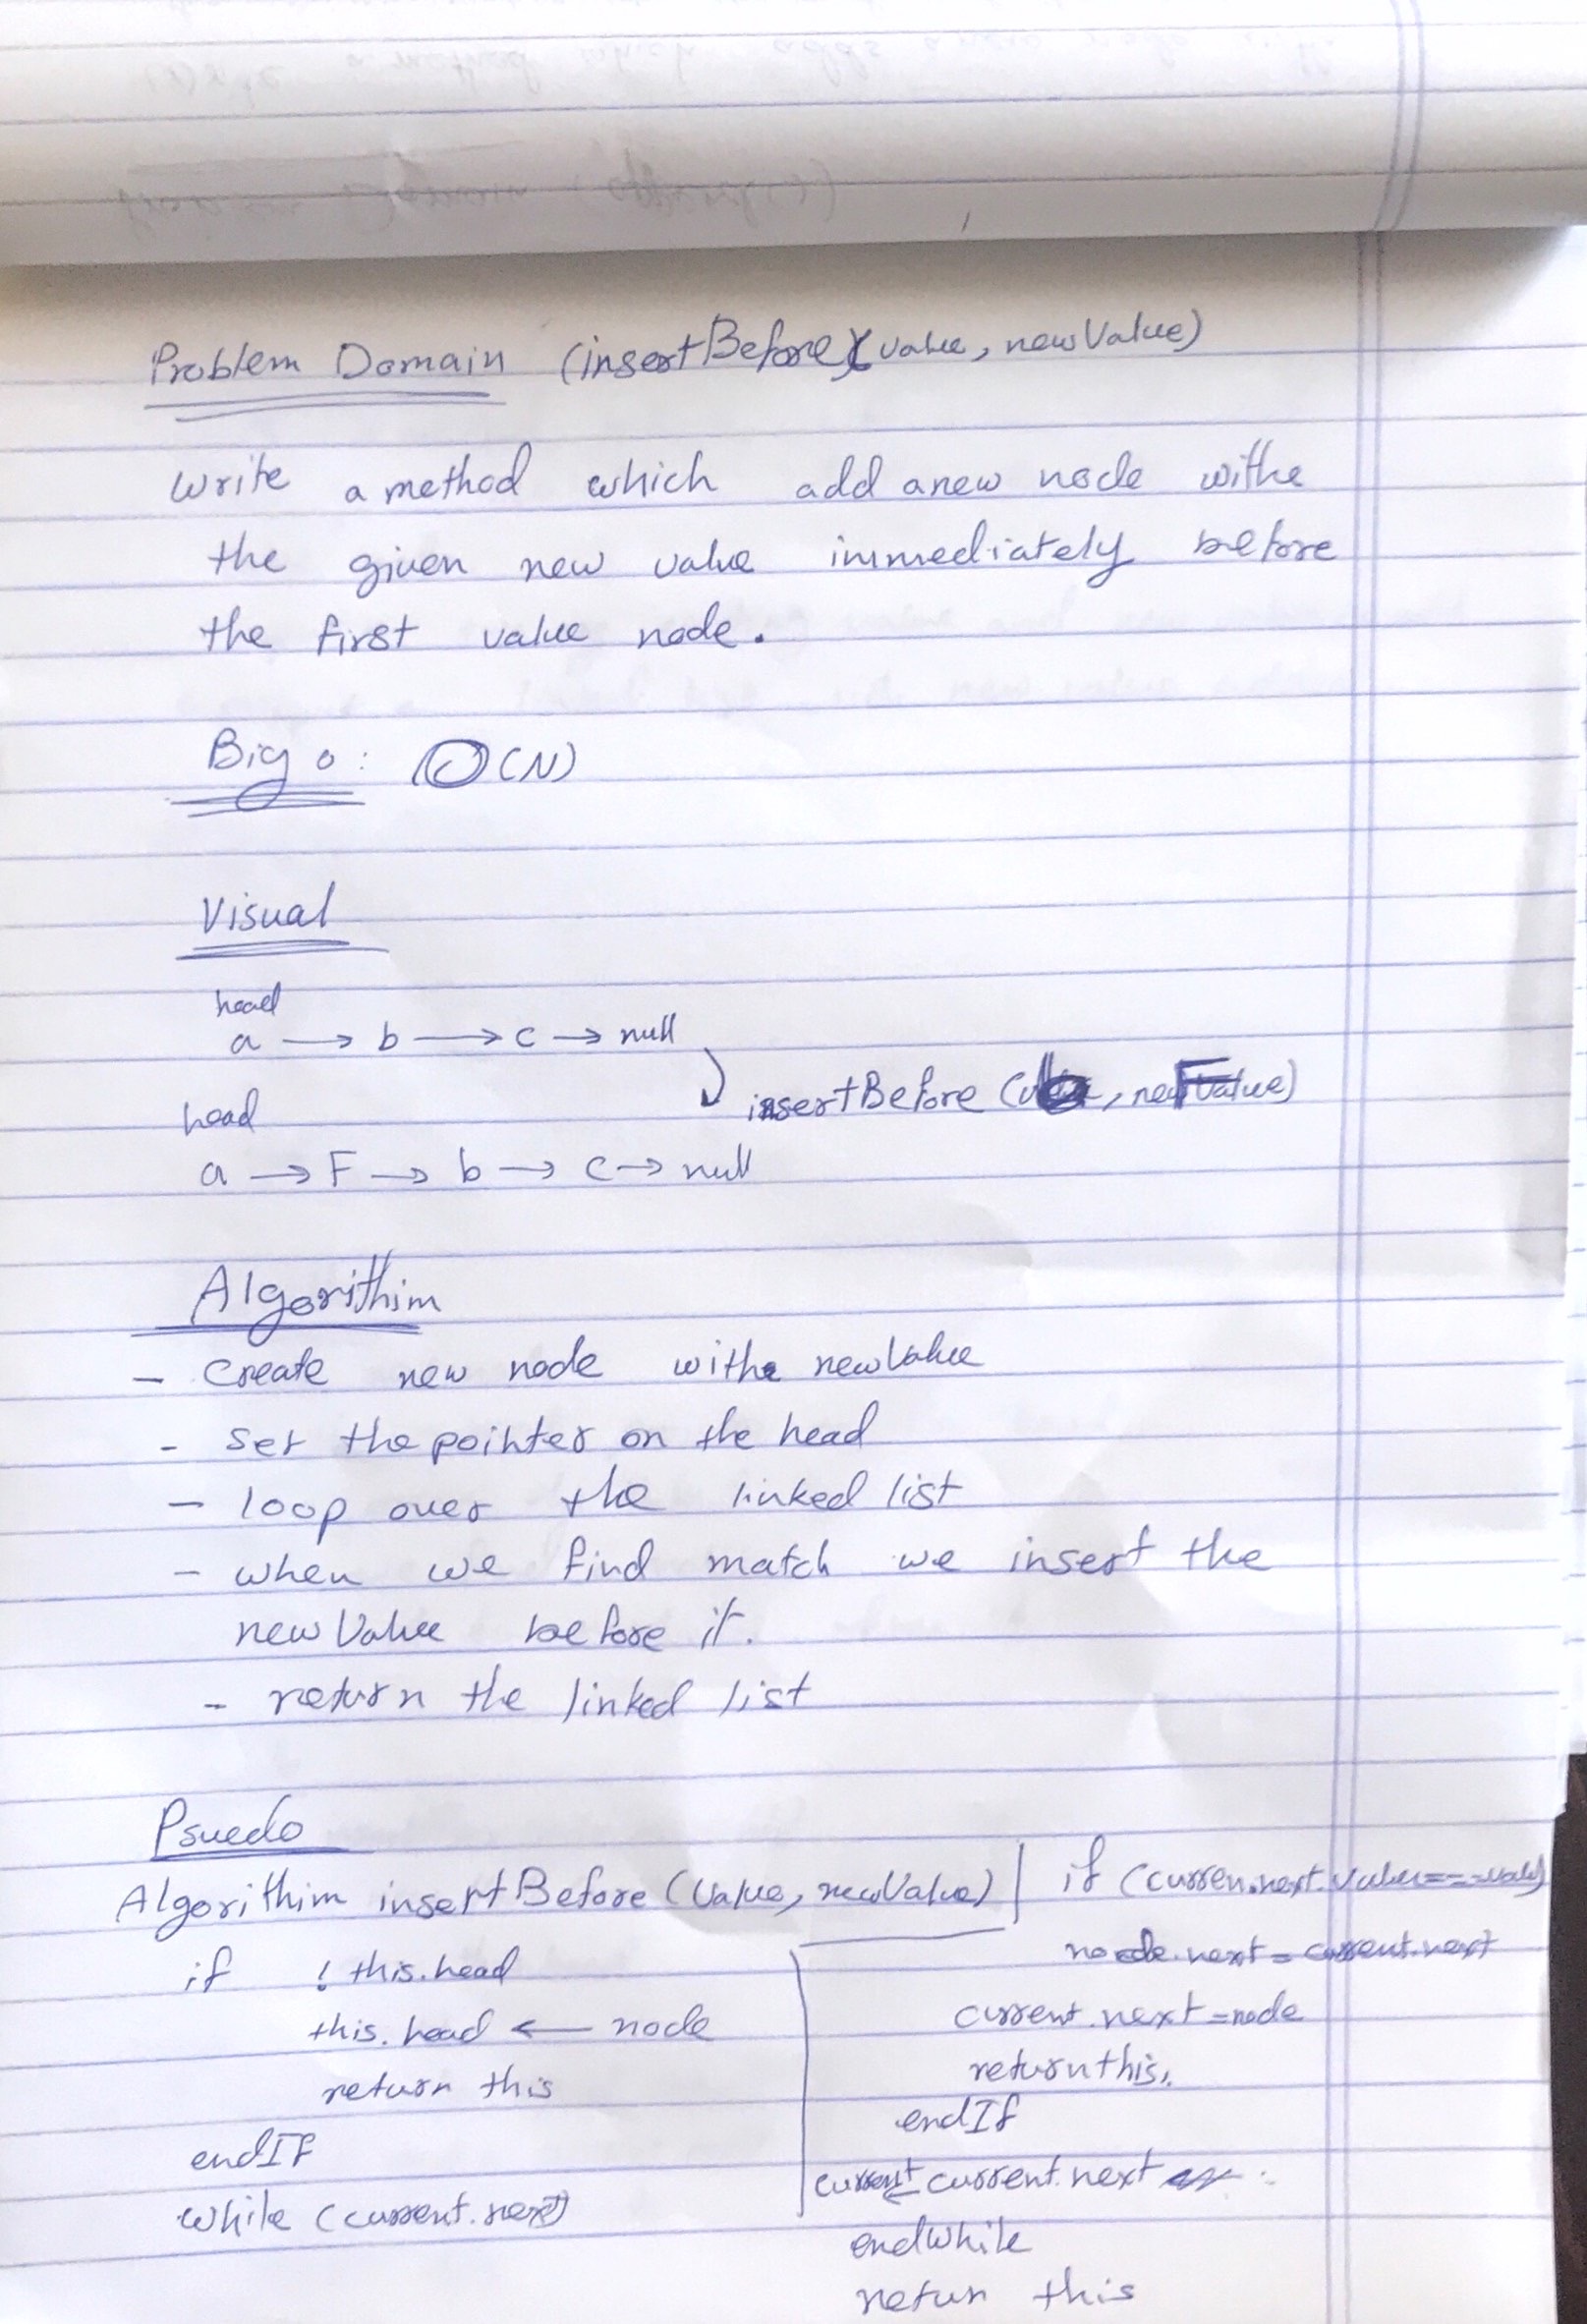 Problem Domain (insertBefore)(value, newValue)
write a method which add a new node withe
the given new value immediately before
the first value node.
Big o: O(N)
Visual
head
a → b → c → null
insertBefore (b, F)
head
a → F → b → c → null
Algorithim
- Create new node withe newValue
- set the pointer on the head
- loop over the linked list
- when we find match we insert the
newValue before it.
- return the linked list
Psuedo
Algorithim insertBefore (Value, newValue)
if ! this.head
this.head ← node
return this
endIF
while (current.next)
if (curren.next.value===value)
node.next = current.next
current.next = node
return this.
endIf
current ← current.next
endwhile
retun this